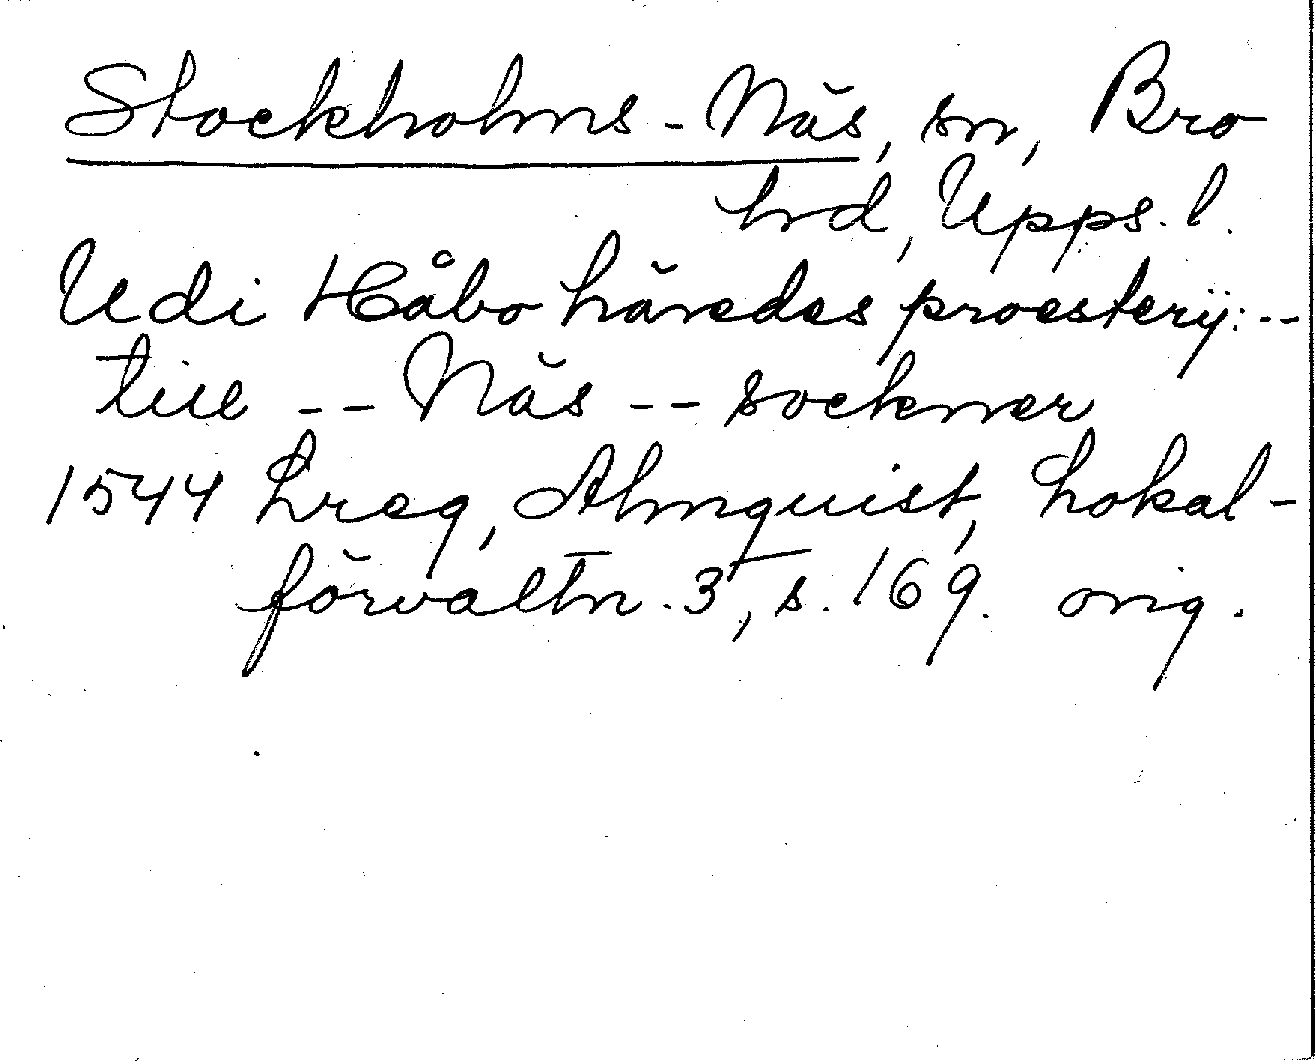 Stockholms-Näs, sn, Bro
hrd, Upps. l.
Udi Håbo häredes proesterij: --
till -- Näs -- sockner
1544 Lreg, Almquist, Lokal-
förvaltn. 3, s. 169. orig.